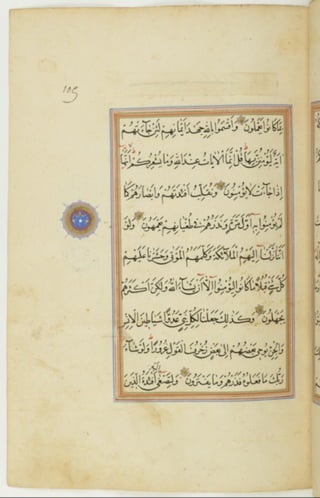 105
بما كانوا يعملون واقسموا بالله جهد ايمانهم لئن جاءتهم
اية ليؤمنن بها قل انما الايات عند الله وما يشعركم انها
اذا جاءت لا يؤمنون ونقلب افئدتهم وابصارهم كما
لم يؤمنوا به اول مرة ونذرهم في طغيانهم يعمهون ولو
اننا نزلنا اليهم الملائكة وكلمهم الموتى وحشرنا عليهم
كل شيء قبلا ما كانوا ليؤمنوا الا ان يشاء الله ولكن اكثرهم
يجهلون وكذلك جعلنا لكل نبي عدوا شياطين الانس
والجن يوحي بعضهم الى بعض زخرف القول غرورا ولو شاء
ربك ما فعلوه فذرهم وما يفترون ولتصغى اليه افئدة الذين